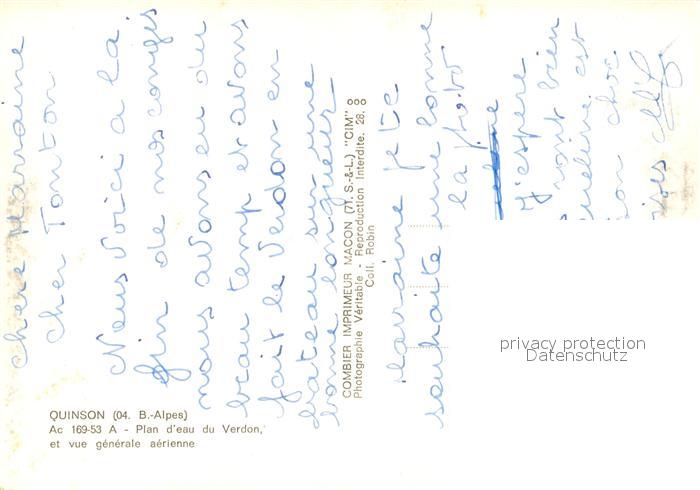 chère Marraine
cher Tonton
Nous voici à la
fin de nos conges
nous avons eu du
beau temp et avons
fait le Verdon en
bateau sur une
bonne longueur
COMBIER IMPRIMEUR MACON (71. S.-&-L.) "CIM"
Photographie Véritable - Reproduction Interdite. 28.
Coll. Robin
Marraine
souhaite une bonne
fête
la photo
J'espère
vont bien
est
son choc
QUINSON (04. B.-Alpes)
Ac 169-53 A - Plan d'eau du Verdon,
et vue générale aérienne
privacy protection
Datenschutz